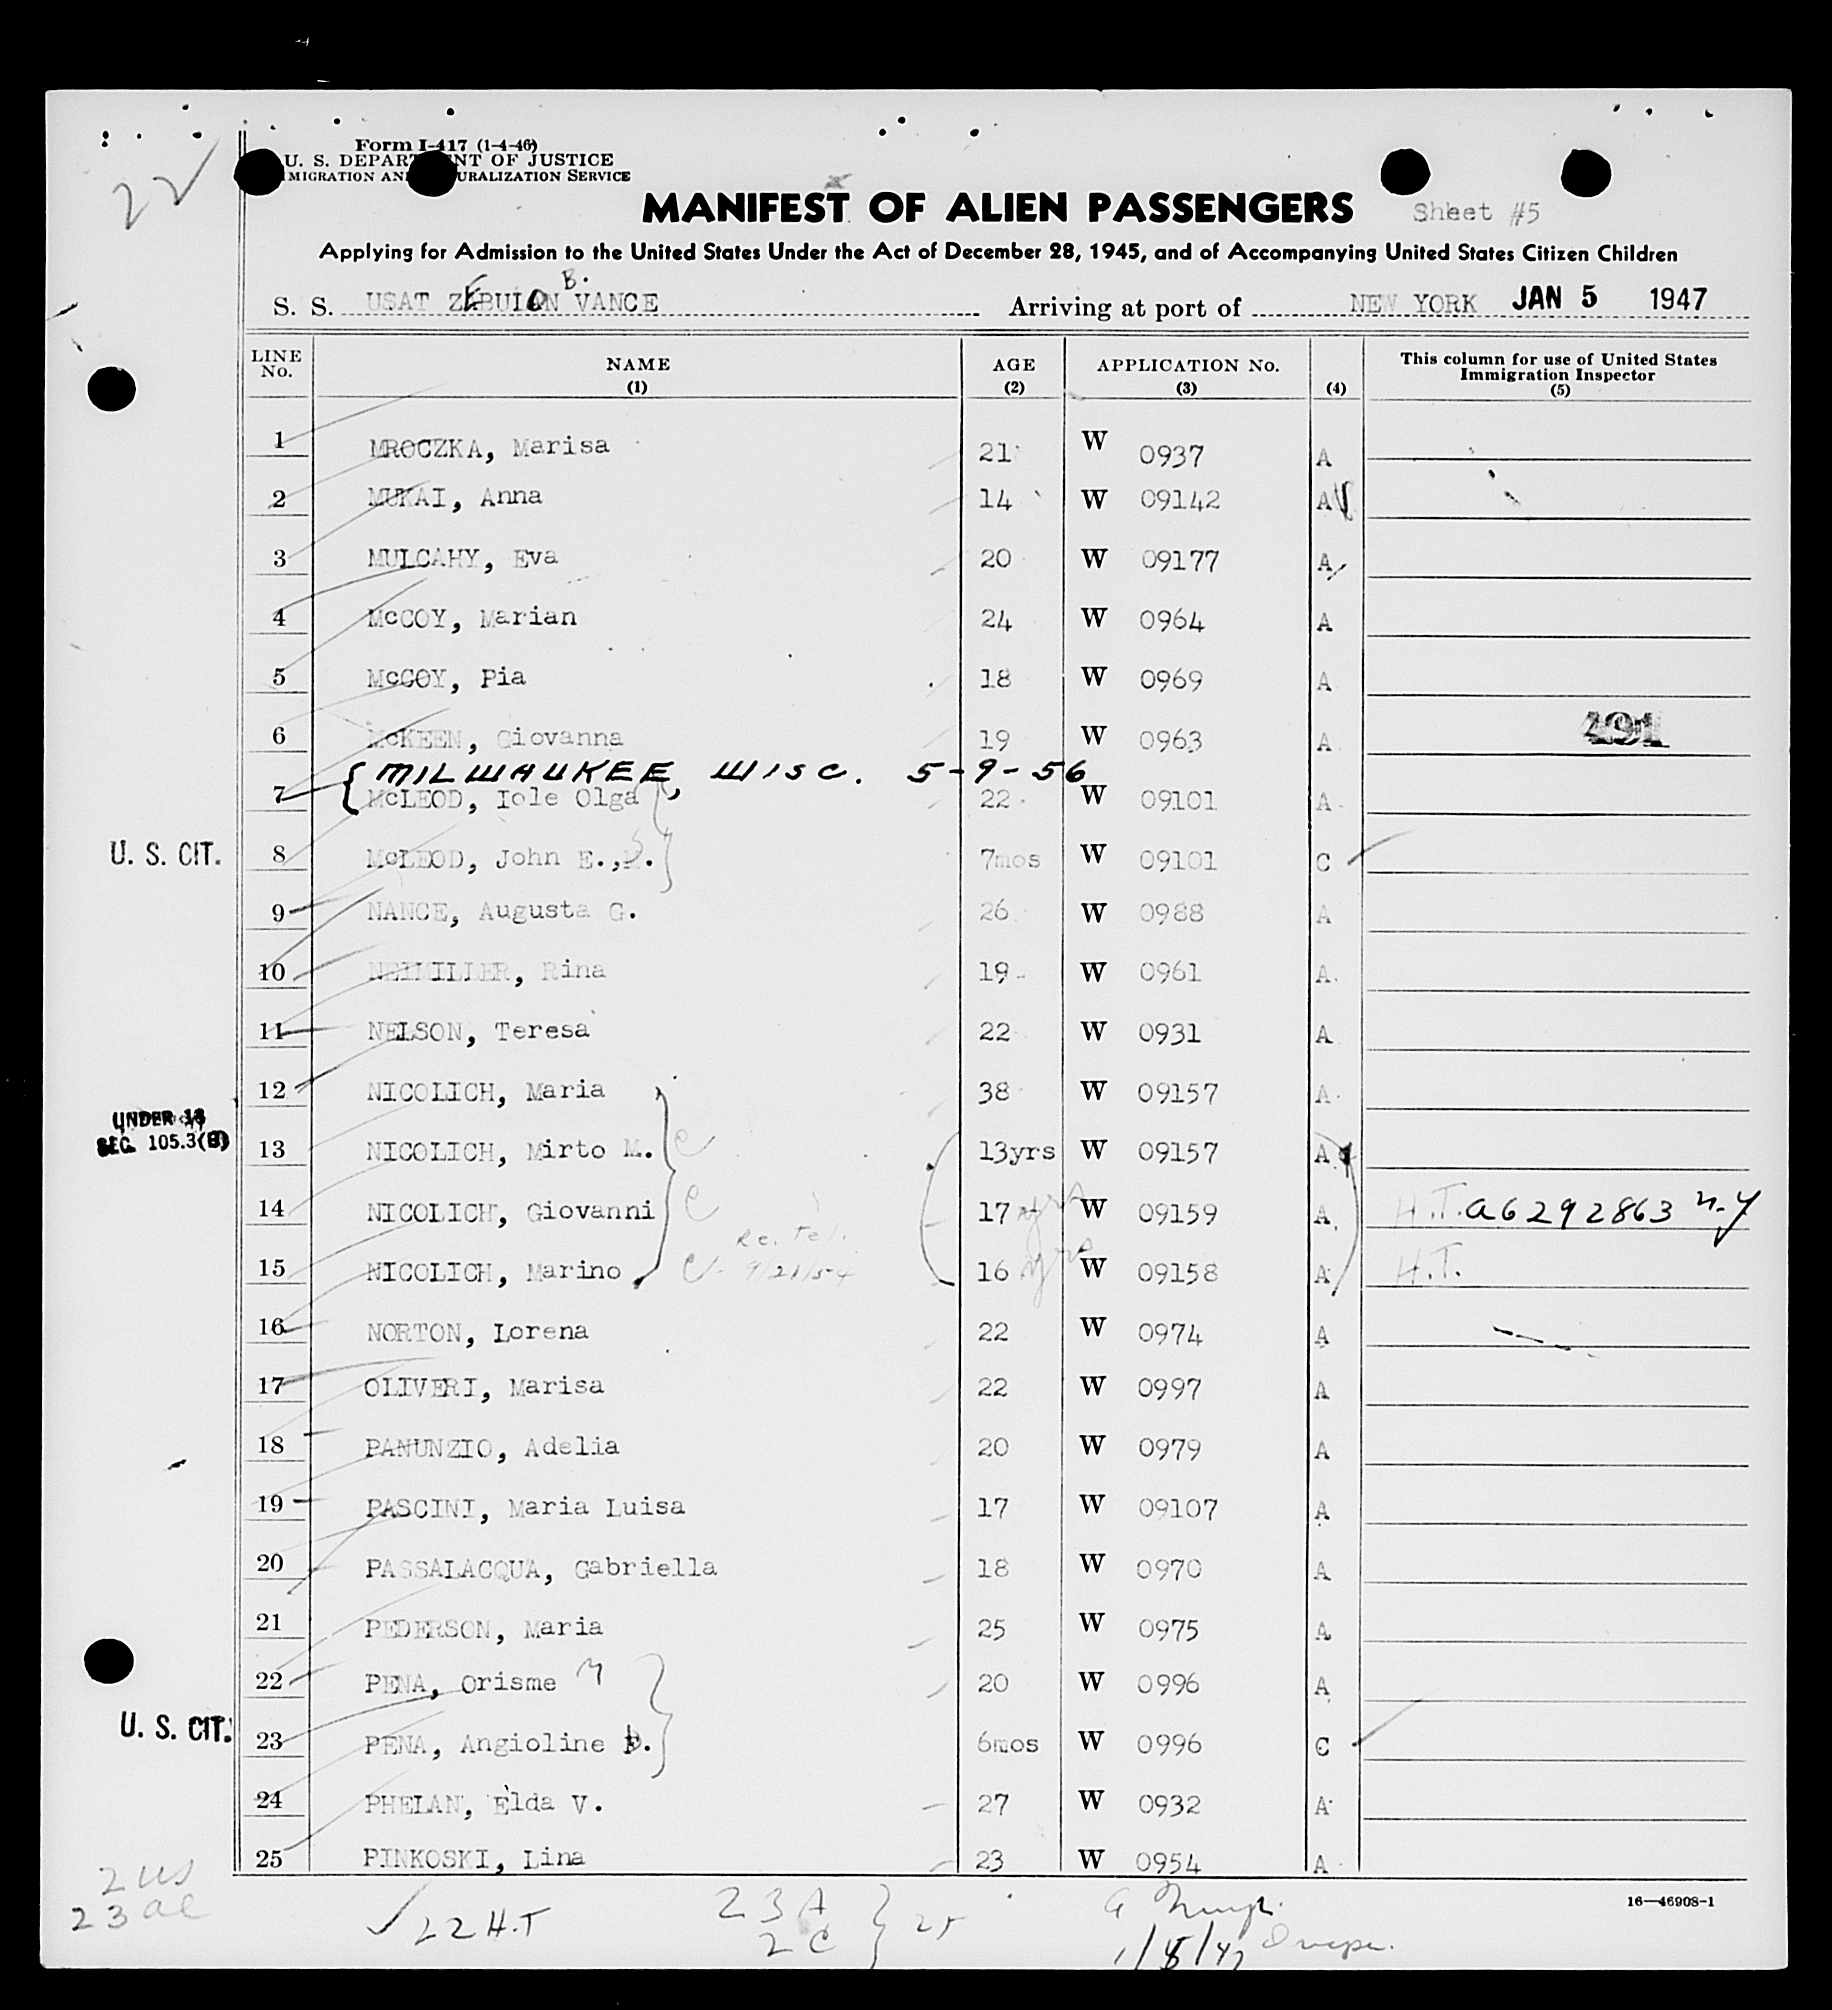 22
Form I-417 (1-4-46)
U. S. DEPARTMENT OF JUSTICE
IMMIGRATION AND NATURALIZATION SERVICE
MANIFEST OF ALIEN PASSENGERS Sheet #5
Applying for Admission to the United States Under the Act of December 28, 1945, and of Accompanying United States Citizen Children
S. S. USAT ZEBULON B. VANCE Arriving at port of NEW YORK JAN 5 1947
LINE No. NAME (1) AGE (2) APPLICATION No. (3) (4) This column for use of United States Immigration Inspector (5)
1 MROCZKA, Marisa 21 W 0937 A
2 MUKAI, Anna 14 W 09142 A
3 MULCAHY, Eva 20 W 09177 A
4 McCOY, Marian 24 W 0964 A
5 McCOY, Pia 18 W 0969 A
6 McKEEN, Giovanna 19 W 0963 A 491
MILWAUKEE, WISC. 5-9-56
7 McLEOD, Iole Olga 22 W 09101 A
U. S. CIT. 8 McLEOD, John E., 7mos W 09101 C
9 NANCE, Augusta G. 26 W 0988 A
10 NEIMILLER, Rina 19 W 0961 A
11 NELSON, Teresa 22 W 0931 A
12 NICOLICH, Maria 38 W 09157 A
UNDER
SEC. 105.3(B) 13 NICOLICH, Mirto M. C 13yrs W 09157 A
14 NICOLICH, Giovanni C 17 yrs W 09159 A H.T. a6292863 n.y
Re. Tel.
15 NICOLICH, Marino C 9/21/54 16 yrs W 09158 A H.T.
16 NORTON, Lorena 22 W 0974 A
17 OLIVERI, Marisa 22 W 0997 A
18 PANUNZIO, Adelia 20 W 0979 A
19 PASCINI, Maria Luisa 17 W 09107 A
20 PASSALACQUA, Gabriella 18 W 0970 A
21 PEDERSON, Maria 25 W 0975 A
22 PENA, Orisme M 20 W 0996 A
U. S. CIT. 23 PENA, Angioline 6mos W 0996 C
24 PHELAN, Elda V. 27 W 0932 A
25 PINKOSKI, Lina 23 W 0954 A
16—46908-1
2 US
23 al
22 H.T
23 A
2 C
25
1/5/47